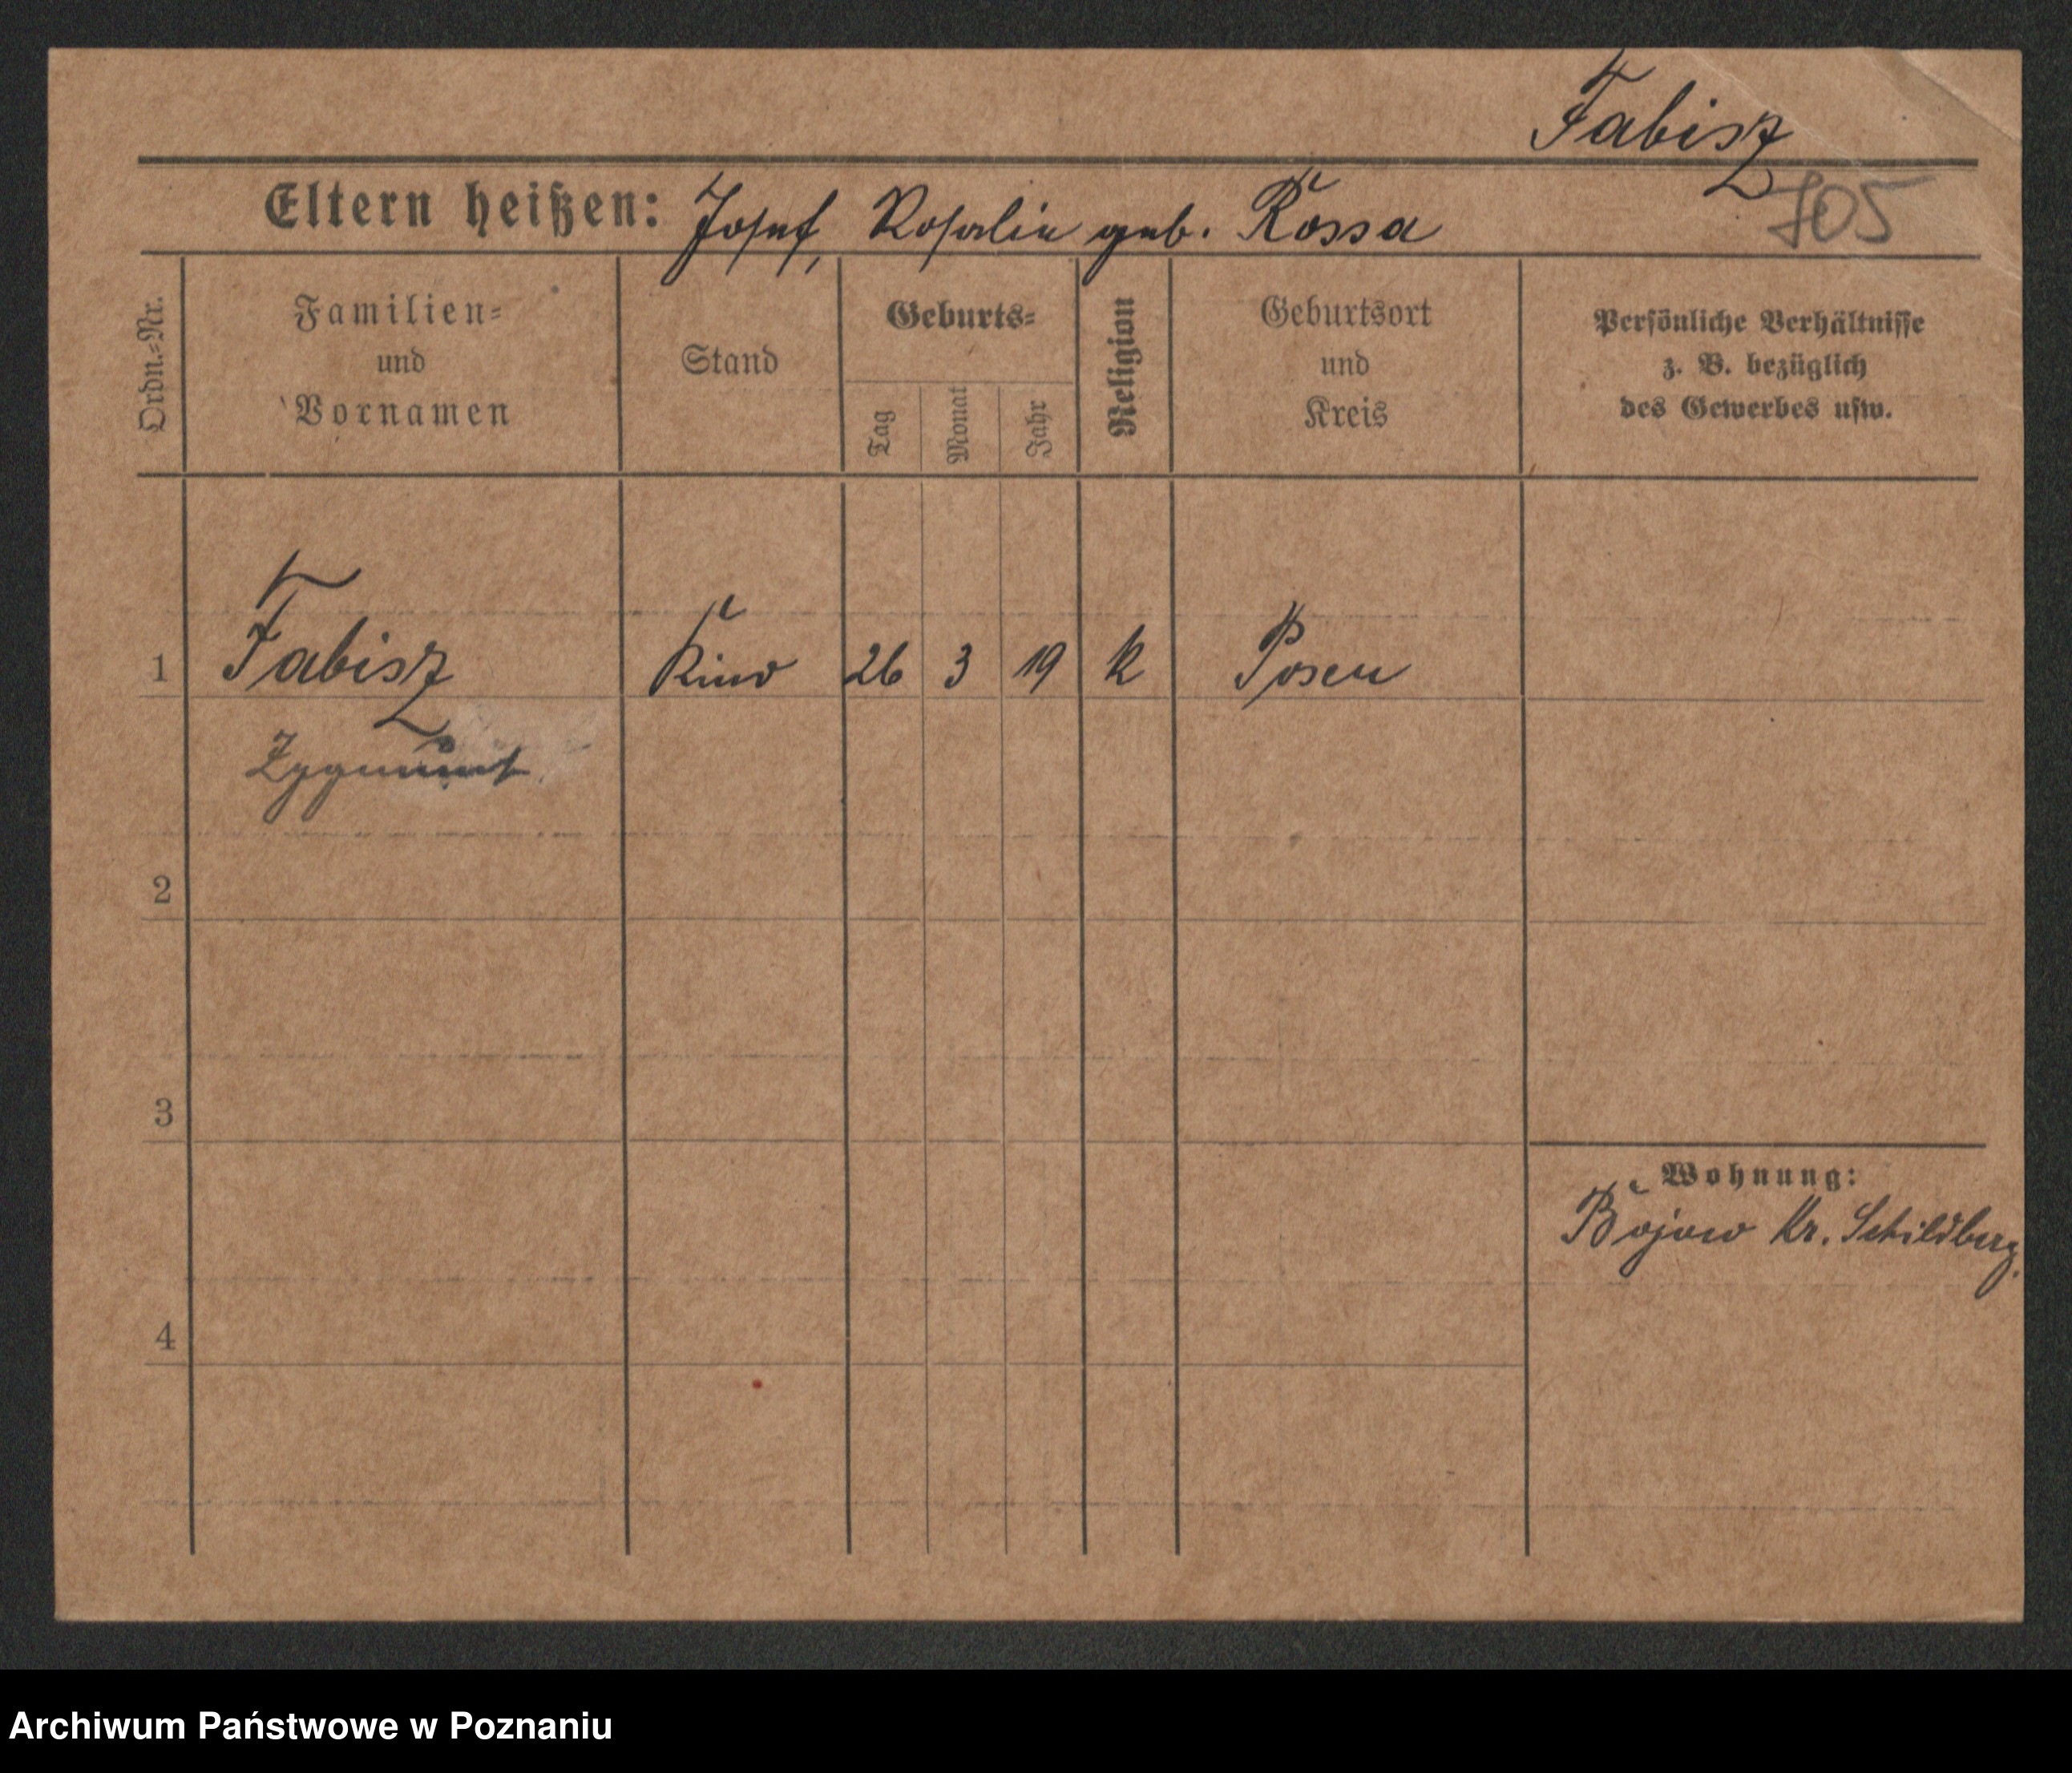 Fabisz
Eltern heißen: Josef, Rosalie geb. Rossa
705
Ordn.=Nr.
Familien=
und
Vornamen
Stand
Geburts=
Tag
Monat
Jahr
Religion
Geburtsort
und
Kreis
Persönliche Verhältnisse
z. B. bezüglich
des Gewerbes usw.
1 Fabisz Kind 26 3 19 k Posen
Zygmunt
2
3
Wohnung:
Bojow Kr. Schildberg.
4
Archiwum Państwowe w Poznaniu